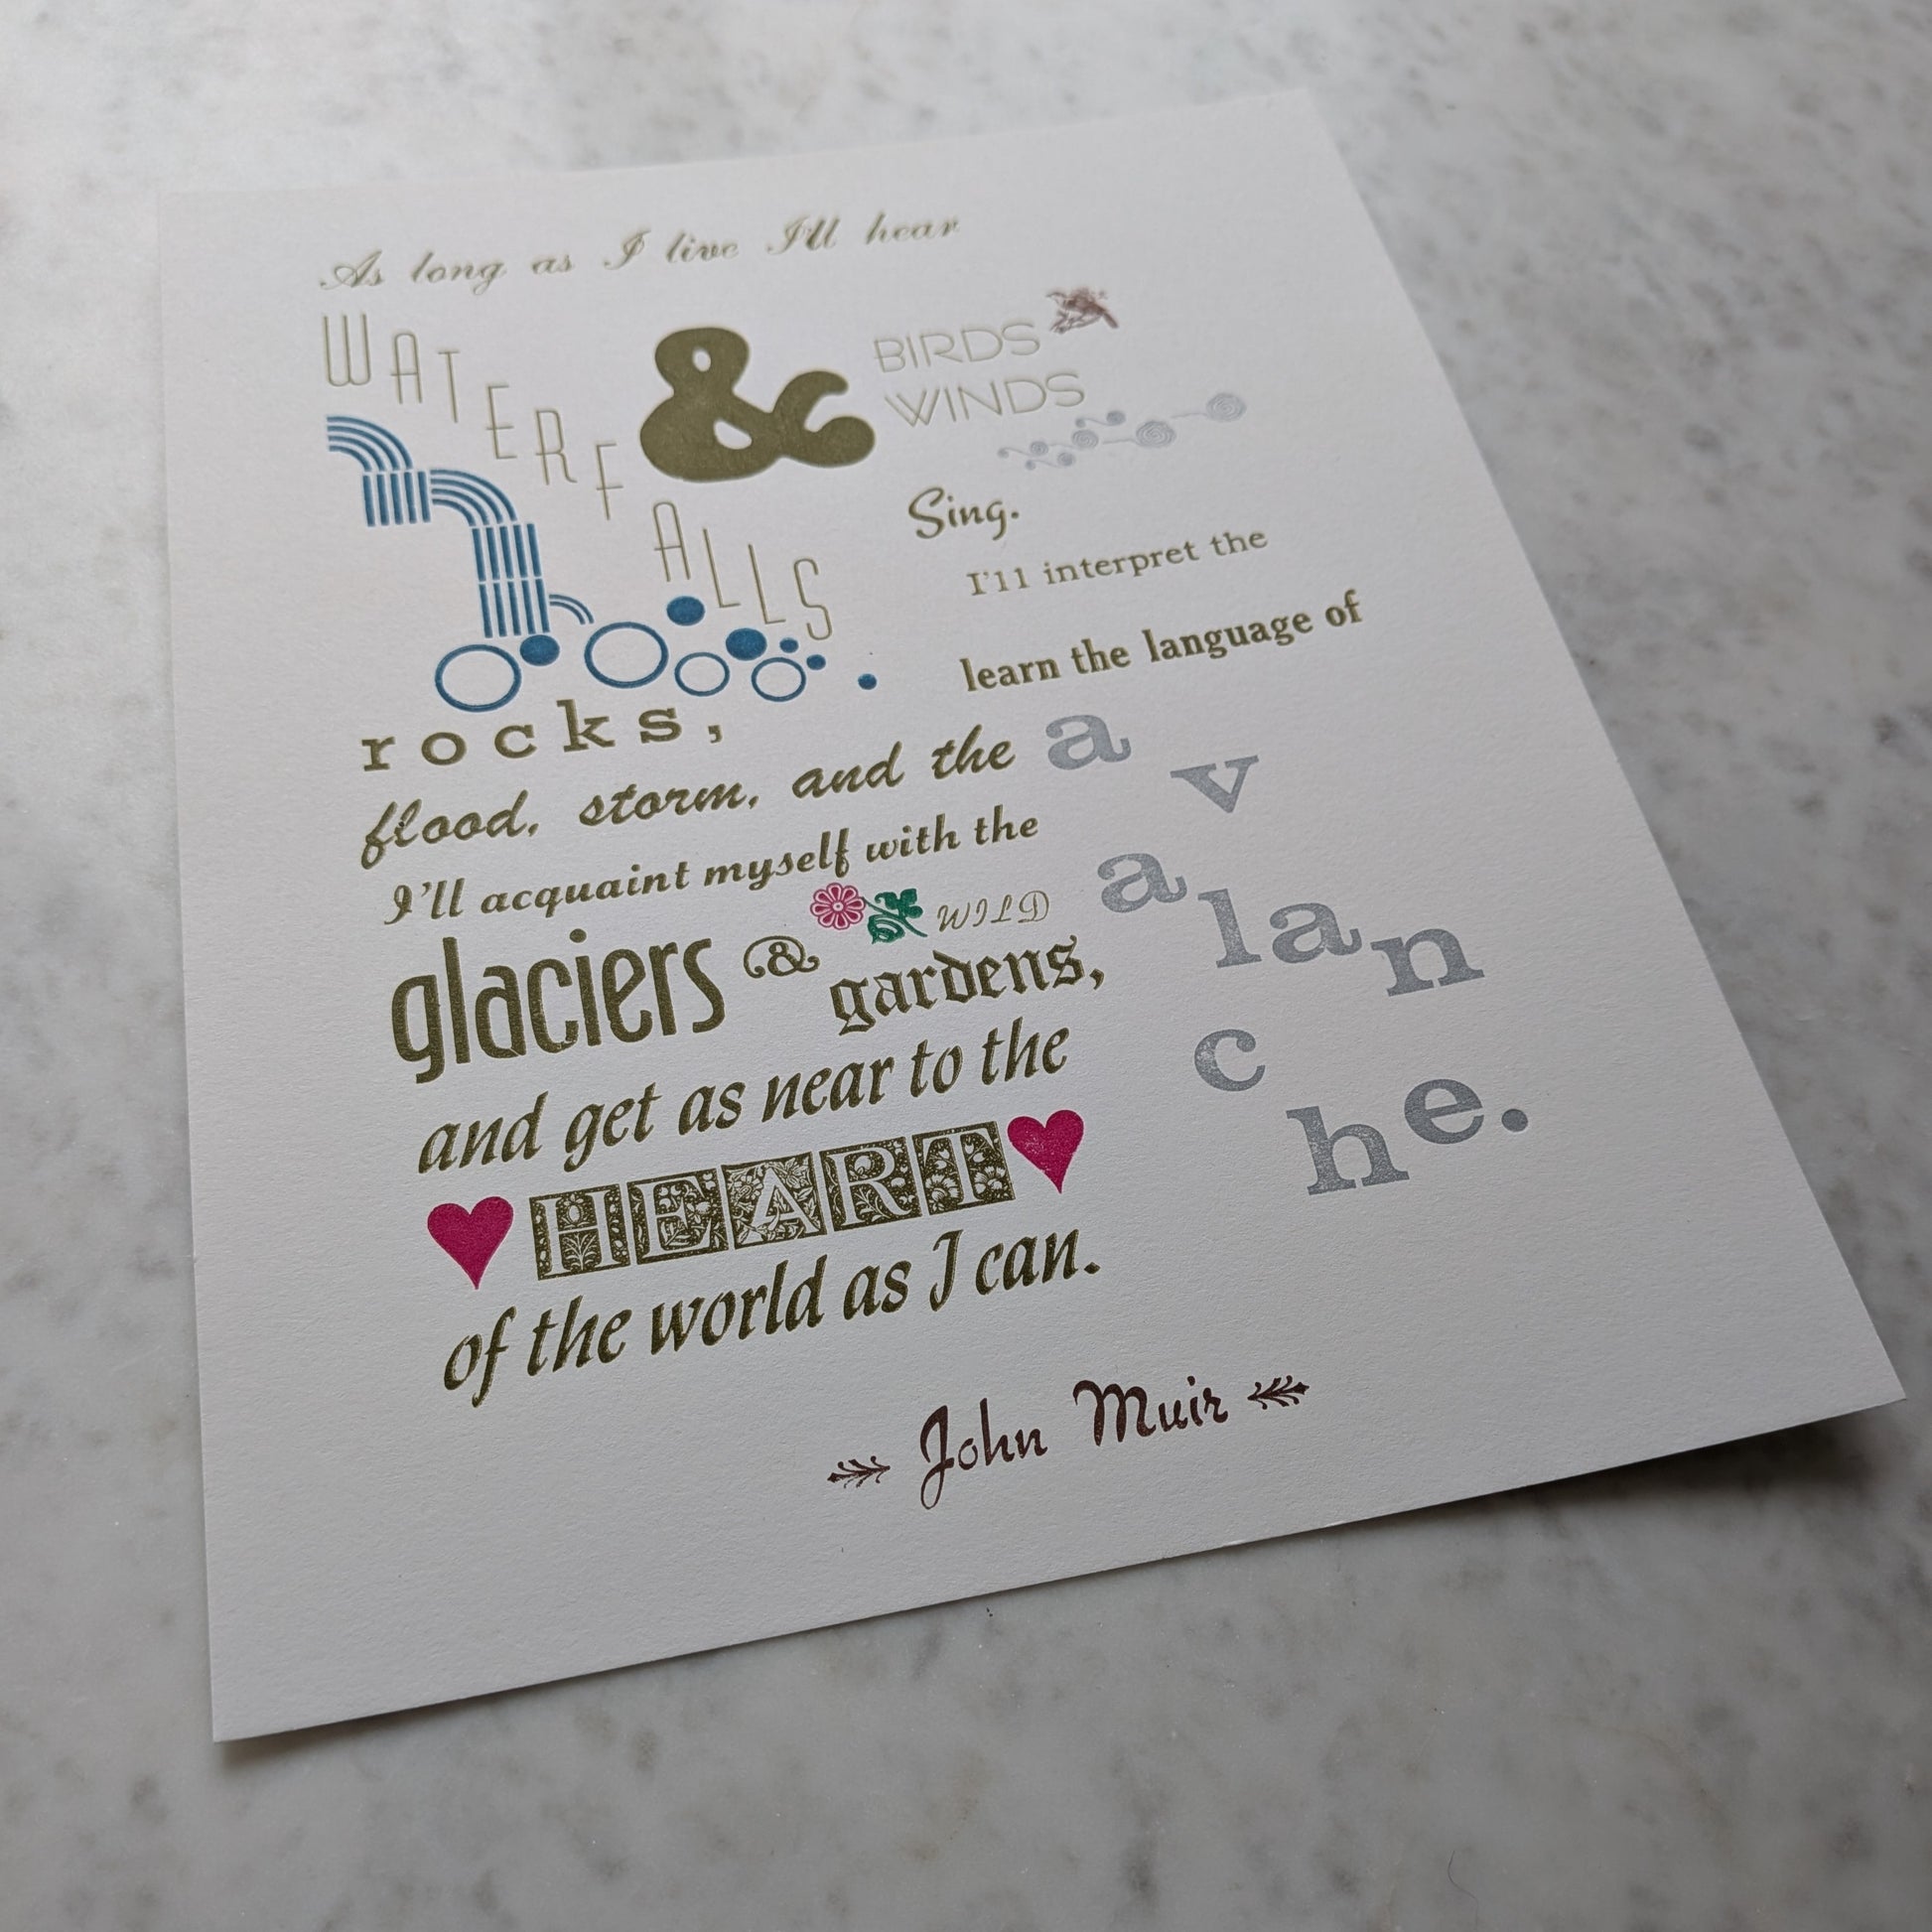 As long as I live I'll hear
WATERFALLS & BIRDS
WINDS
Sing.
I'll interpret the
rocks,
learn the language of
flood, storm, and the avalanche.
I'll acquaint myself with the
glaciers & WILD
gardens,
and get as near to the
HEART
of the world as I can.
John Muir